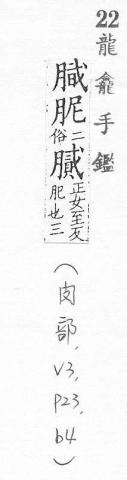 22 龍龕手鑑
胒二俗膩正女至反肥也三
(肉部, V3, P23, b4)